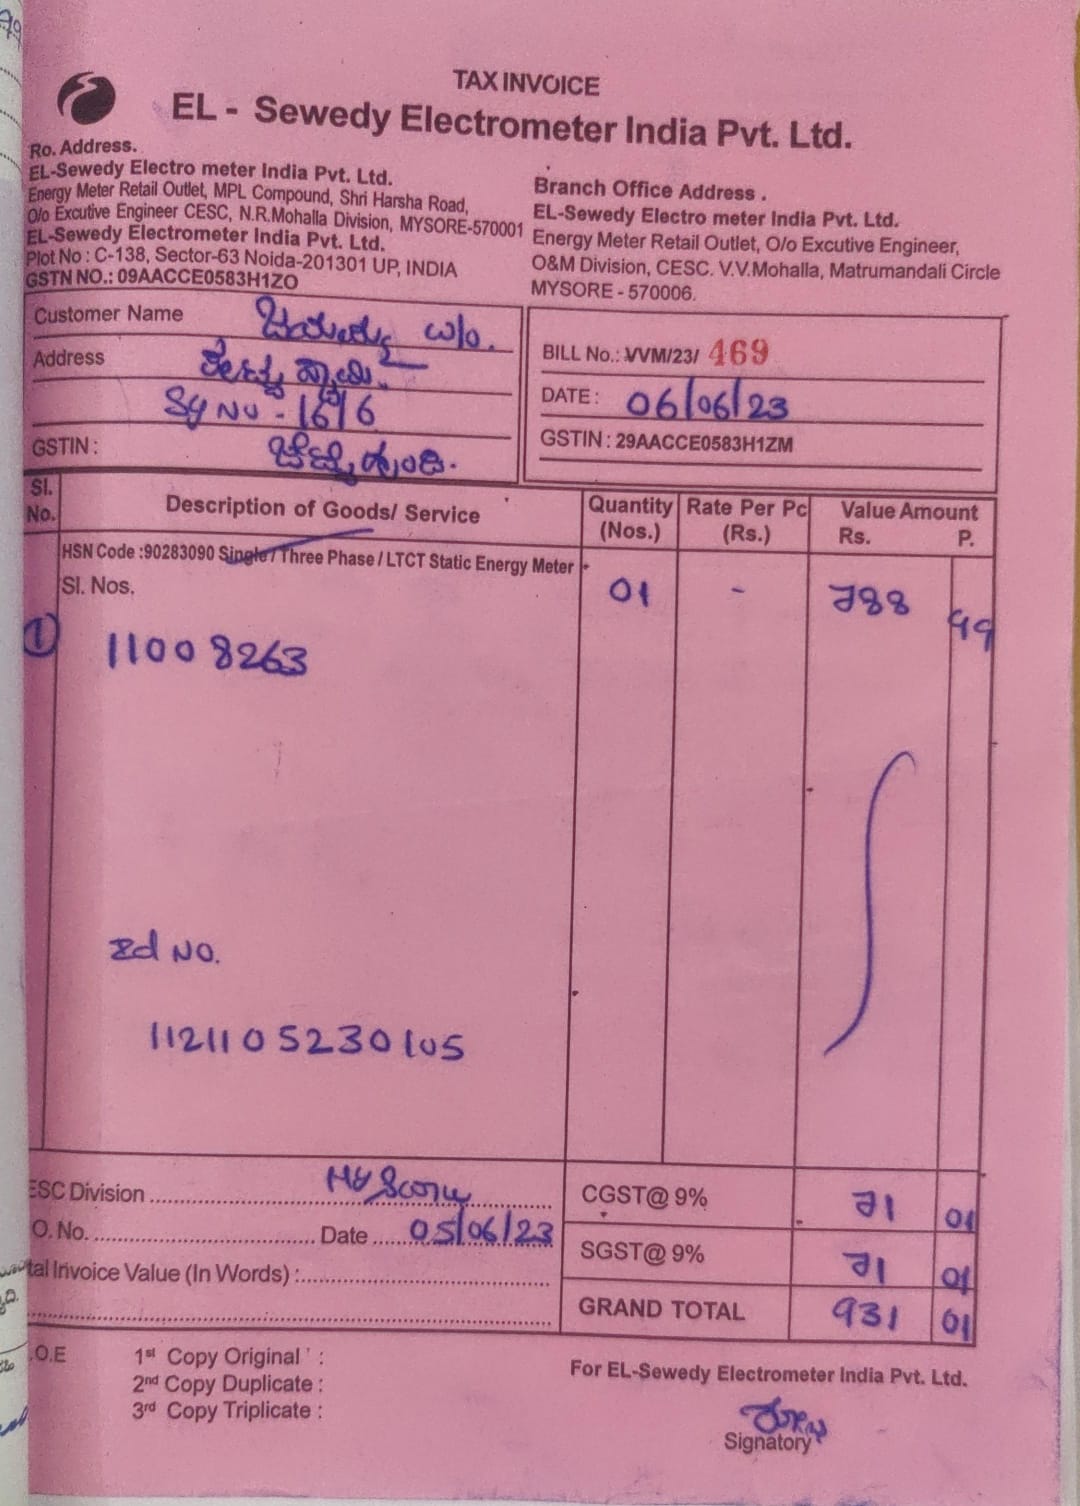 TAX INVOICE
EL - Sewedy Electrometer India Pvt. Ltd.
Ro. Address.
EL-Sewedy Electro meter India Pvt. Ltd.
Energy Meter Retail Outlet, MPL Compound, Shri Harsha Road,
O/o Excutive Engineer CESC, N.R.Mohalla Division, MYSORE-570001
EL-Sewedy Electrometer India Pvt. Ltd.
Plot No : C-138, Sector-63 Noida-201301 UP, INDIA
GSTN NO.: 09AACCE0583H1ZO
Branch Office Address .
EL-Sewedy Electro meter India Pvt. Ltd.
Energy Meter Retail Outlet, O/o Excutive Engineer,
O&M Division, CESC. V.V.Mohalla, Matrumandali Circle
MYSORE - 570006.
Customer Name w/o.
Address
Sy No - 16/6
GSTIN :
BILL No.: VVM/23/ 469
DATE : 06/06/23
GSTIN : 29AACCE0583H1ZM
Sl. No. Description of Goods/ Service Quantity (Nos.) Rate Per Pc (Rs.) Value Amount Rs. P.
HSN Code :90283090 Single / Three Phase / LTCT Static Energy Meter
Sl. Nos. 01 - 788 99
1 11008263
No.
1121105230105
ESC Division
O. No. Date 05/06/23
tal Invoice Value (In Words) :
CGST@ 9% 71 01
SGST@ 9% 71 01
GRAND TOTAL 931 01
.O.E
1st Copy Original :
2nd Copy Duplicate :
3rd Copy Triplicate :
For EL-Sewedy Electrometer India Pvt. Ltd.
Signatory